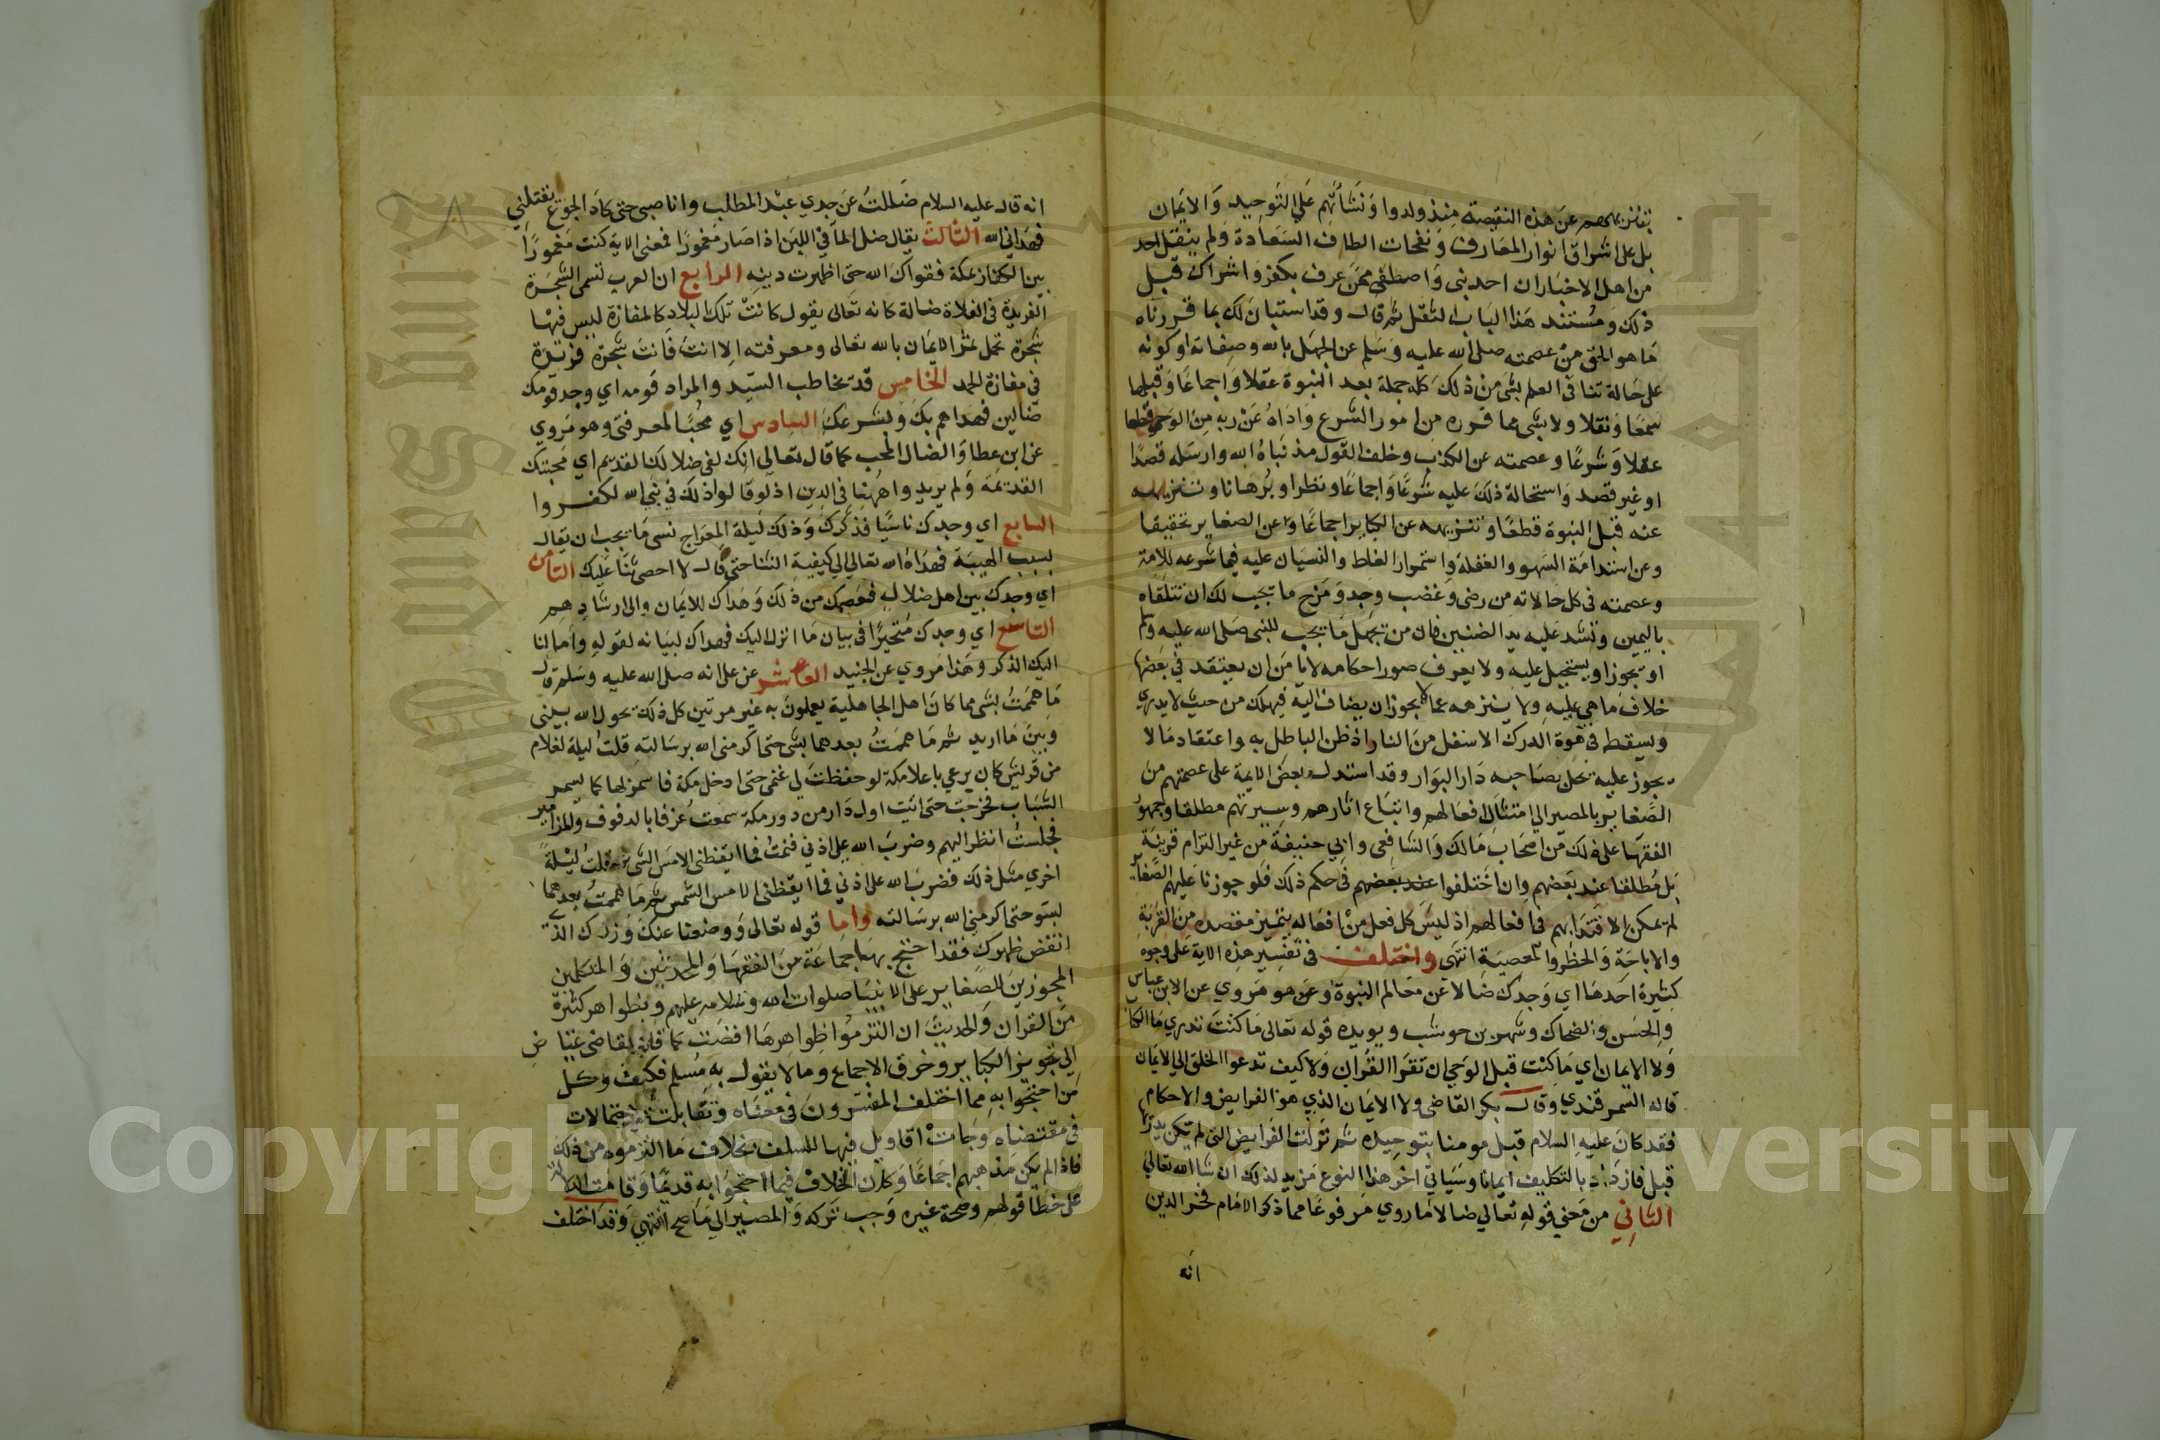 بتنزيههم عن هذه النقيصة منذ ولدوا ونشأتهم على التوحيد والايمان
بل على اشراق انوار المعارف ونفحات الطاف السعادة ولم ينقل احد
من اهل الاخبار ان احد نبى واصطفى ممن عرف بكفر واشراك قبل
ذلك ومستند هذا الباب النقل ثم قال وقد استبان لك بما قررناه
ما هو الحق من عصمته صلى الله عليه وسلم عن الجهل بالله وصفاته او كونه
على حالة تنافى العلم بشى من ذلك كله جملة بعد النبوة عقلا واجماعا وقبلها
سمعا ونقلا ولا بشى مما قرره من امور الشرع واداه عن ربه من الوحي قطعا
عقلا وشرعا وعصمته عن الكذب وخلف القول مذ نباه الله وارسله قصدا
او غير قصد واستحالة ذلك عليه شرعا واجماعا ونظرا وبرهانا وتنزيهه
عنه قبل النبوة قطعا وتنزيهه عن الكباير اجماعا وعن الصغاير تحقيقا
وعن استدامة السهو والغفلة واستمرار الغلط والنسيان عليه فيما شرعه للامة
وعصمته في كل حالاته من رضى وغضب وجد ومزح ما يجب لك ان تتلقاه
باليمين وتشد عليه يد الضنين فان من يجهل ما يجب للنبى صلى الله عليه وسلم
او يجوز او يستحيل عليه ولا يعرف صور احكامه لا يامن ان يعتقد في بعضها
خلاف ما هي عليه ولا ينزهه عما لا يجوز ان يضاف اليه فيهلك من حيث لا يدري
ويسقط في هوة الدرك الاسفل من النار اذ ظن الباطل به واعتقاد ما لا
يجوز عليه يحل بصاحبه دار البوار وقد استدل بعض الايمة على عصمتهم من
الصغاير بالمصير الي امتثال افعالهم واتباع اثارهم وسيرتهم مطلقا وجمهور
الفقها على ذلك من اصحاب مالك والشافعى وابي حنيفة من غير التزام قرينة
بل مطلقا عند بعضهم وان اختلفوا عند بعضهم في حكم ذلك فلو جوزنا عليهم الصغاير
لم يمكن الاقتدا بهم في افعالهم اذ ليس كل فعل من افعاله يتميز مقصده من القربة
والاباحة والحظر والمعصية انتهى واختلف في تفسير هذه الاية على وجوه
كثيرة احدها اي وجدك ضالا عن معالم النبوة وهو مروي عن ابن عباس
والحسن والضحاك وشهر بن حوشب ويويده قوله تعالى ما كنت تدري ما الكتاب
ولا الايمان اي ما كنت قبل الوحي ان تقرا القران ولا كيف تدعوا الخلق الي الايمان
قاله السمرقندي وقال بكر القاضى ولا الايمان الذي هو الفرايض والاحكام
فقد كان عليه السلام قبل مومنا بتوحيده ثم نزلت الفرايض التي لم يكن يدريها
قبل فازداد بالتكليف ايمانا وسياتي اخر هذا النوع مزيد لذلك ان شا الله تعالى
الثاني من معني قوله تعالي ضالا ما روي مرفوعا مما ذكر الامام فخر الدين
انه
انه قال عليه السلام ضللت عن جدي عبد المطلب وانا صبى حتى كاد الجوع يقتلني
فهداني الله الثالث يقال ضل الما في اللبن اذا صار مغمورا فمعنى الاية كنت مغمورا
بين الكفار بمكة فقواك الله حتى اظهرت دينه الرابع ان العرب تسمى الشجرة
الفريدة في الفلاة ضالة كانه تعالى يقول كانت تلك البلاد كالمفازة ليس فيها
شجرة تحمل ثمر الايمان بالله تعالى ومعرفته الا انت فانت شجرة فريدة
في مفازة الحمد الخامس قد يخاطب السيد والمراد قومه اي وجد قومك
ضالين فهداهم بك وبشرعك السادس اي محبا لمعرفتى وهو مروي
عن ابن عطا والضال المحب كما قال تعالي انك لفى ضلالك القديم اي محبتك
القديمة ولم يريدوا ههنا في الدين اذ لو قالوا ذلك في نبى الله لكفروا
السابع اي وجدك ناسيا فذكرك وذلك ليلة المعراج نسى ما يجب ان يقال
بسبب الهيبة فهداه الله تعالي الي كيفية الثنا حتى قال لا احصى ثنا عليك الثامن
اي وجدك بين اهل ضلال فعصمك من ذلك وهداك للايمان والى ارشادهم
التاسع اي وجدك متحيرا في بيان ما انزل اليك فهداك لبيانه لقوله وانزلنا
اليك الذكر وهذا مروي عن الجنيد العاشر عن على انه صلى الله عليه وسلم قال
ما هممت بشى مما كان اهل الجاهلية يعملون به غير مرتين كل ذلك يحول الله بينى
وبين ما اريد ثم ما هممت بعدهما بشى حتى اكرمنى الله برسالته قلت ليلة لغلام
من قريش كان يرعي باعلا مكة لو حفظت لي غنمى حتى ادخل مكة فاسمر بها كما يسمر
الشباب فخرجت حتى اتيت اول دار من دور مكة سمعت عزفا بالدفوف والمزامير
فجلست انظر اليهم وضرب الله على اذني فنمت فما ايقظنى الا مس الشمس ثم قلت ليلة
اخري مثل ذلك فضرب الله على اذني فما ايقظنى الا مس الشمس ثم ما هممت بعدهما
بسو حتى اكرمنى الله برسالته واما قوله تعالى ووضعنا عنك وزرك الذي
انقض ظهرك فقد احتج بها جماعة من الفقها والمحدثين والمتكلمين
المجوزين الصغاير على الانبيا صلوات الله وسلامه عليهم وبظواهر كثيرة
من القران والحديث ان التزموا ظواهرها افضت كما قاله القاضى عياض
الي تجويز الكباير وخرق الاجماع وما لا يقول به مسلم فكيف وكل
من احتجوا به مما اختلف المفسرون في معناه وتقابلت الاحتمالات
في مقتضاه وجات اقاويل فيها للسلف بخلاف ما التزموه من ذلك
فاذا لم يكن مذهبهم اجماعا وكان الخلاف فيما احتجوا به قديما وقامت الدلالة
على خطا قولهم وصحة غيره وجب تركه والمصير الي ما صح انتهي وقد اختلف
Copyright © King Saud University